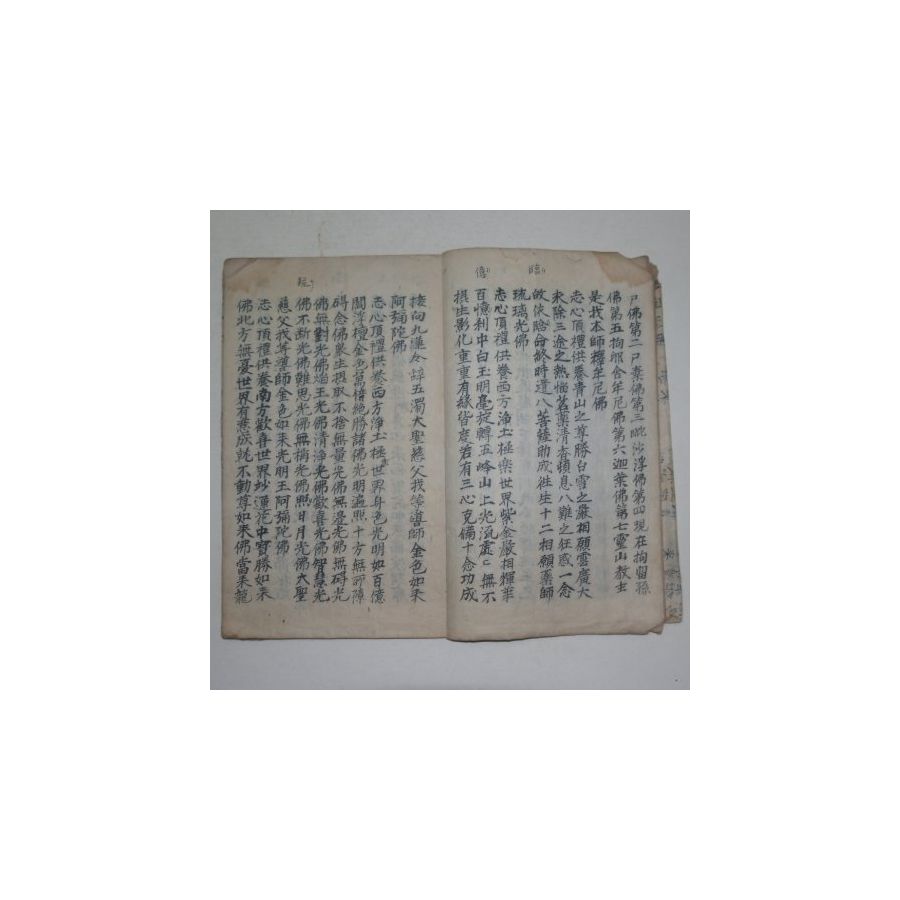 臨
億
尸佛第二尸棄佛第三毗沙浮佛第四現在拘留孫
佛第五拘那含牟尼佛第六迦葉佛第七靈山教主
是我本師釋牟尼佛
志心頂禮供養青山之尊勝白雪之嚴相願雲廣大
永除三途之熱惱茗藥清香頓息八難之狂惑一念
敀依臨命終時遣八菩薩助成徃生十二相願藥師
琉璃光佛
志心頂禮供養西方淨土極樂世界紫金嚴相輝華
百憶刹中白玉明毫旋轉五峰山上光流處〻無不
攝生影化重重有緣皆度若有三心克備十念功成
接向九蓮令辭五濁大聖慈父我等導師金色如來
阿彌陀佛
志心頂禮供養西方淨土極世界身色光明如百億
閻浮檀金色萬德絶勝諸佛光明遍照十方無所障
碍念佛衆生摂取不捨無量光佛無邊光佛無碍光
佛無對光佛焰王光佛清淨光佛歡喜光佛智慧光
佛不断光佛難思光佛無稱光佛照日月光佛大聖
慈父我等導師金色如來光明王阿彌陀佛
志心頂禮供養南方歡喜世界妙蓮花中寶勝如來
佛北方無憂世界有慈成就不動尊如來佛當來龍